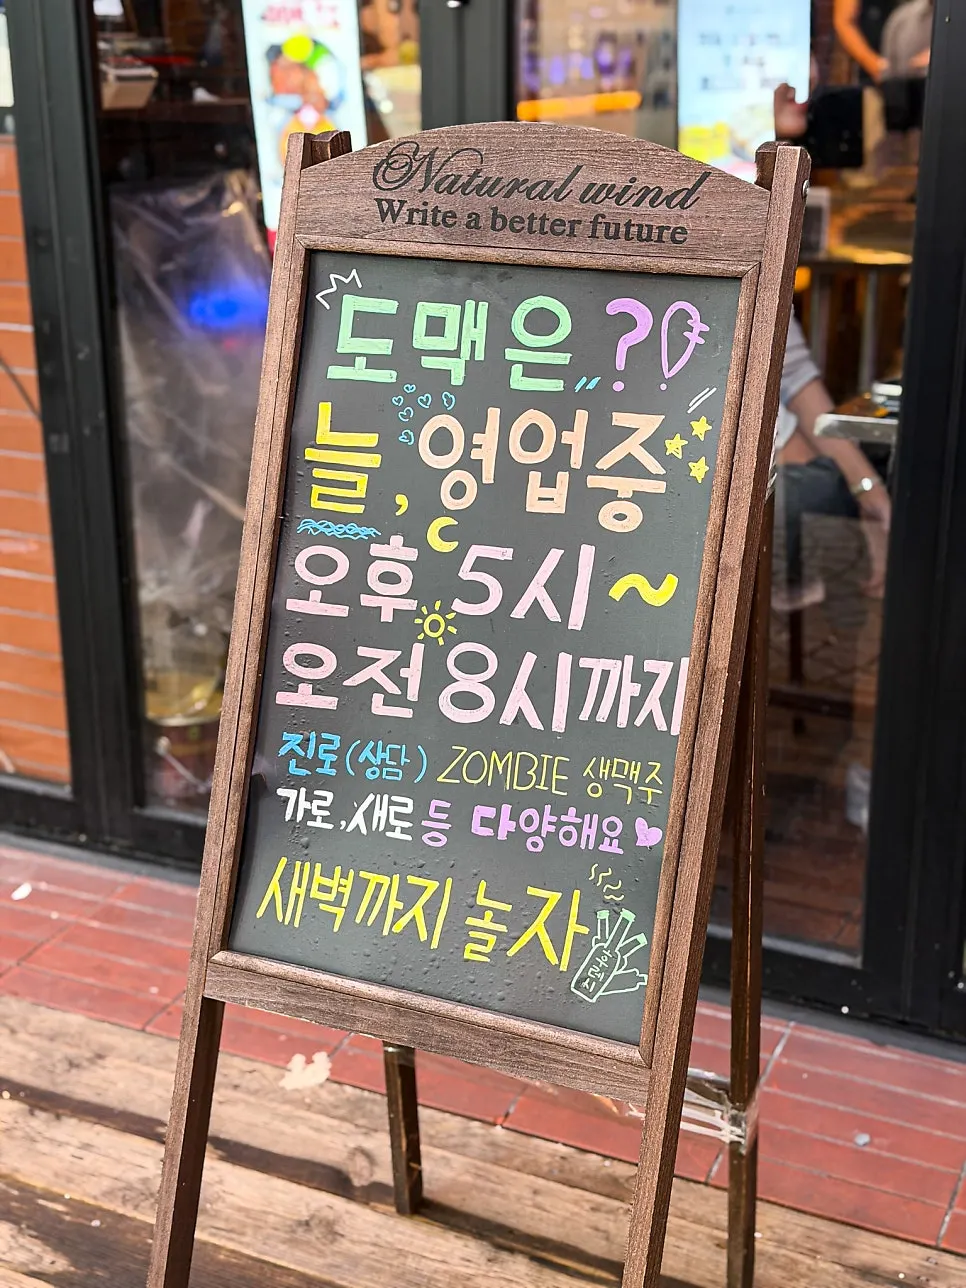 Natural wind
Write a better future
도맥은?!
늘, 영업중
오후 5시~
오전 8시까지
진로(상담) ZOMBIE 생맥주
가로, 새로 등 다양해요
새벽까지 놀자